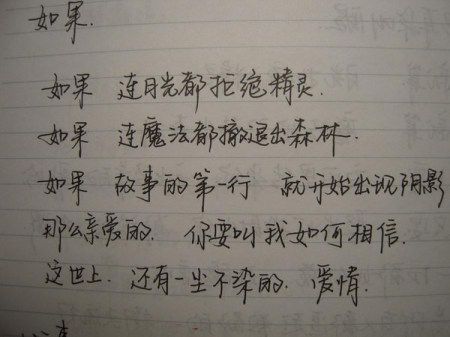 如果.
如果 连月光都拒绝精灵.
如果 连魔法都撤退出森林.
如果 故事的第一行 就开始出现阴影
那么亲爱的. 你要叫我如何相信.
这世上. 还有一尘不染的. 爱情.